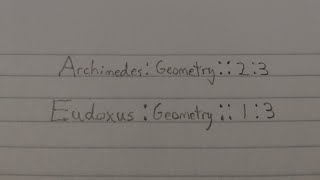 Archimedes:Geometry::2:3
Eudoxus:Geometry::1:3